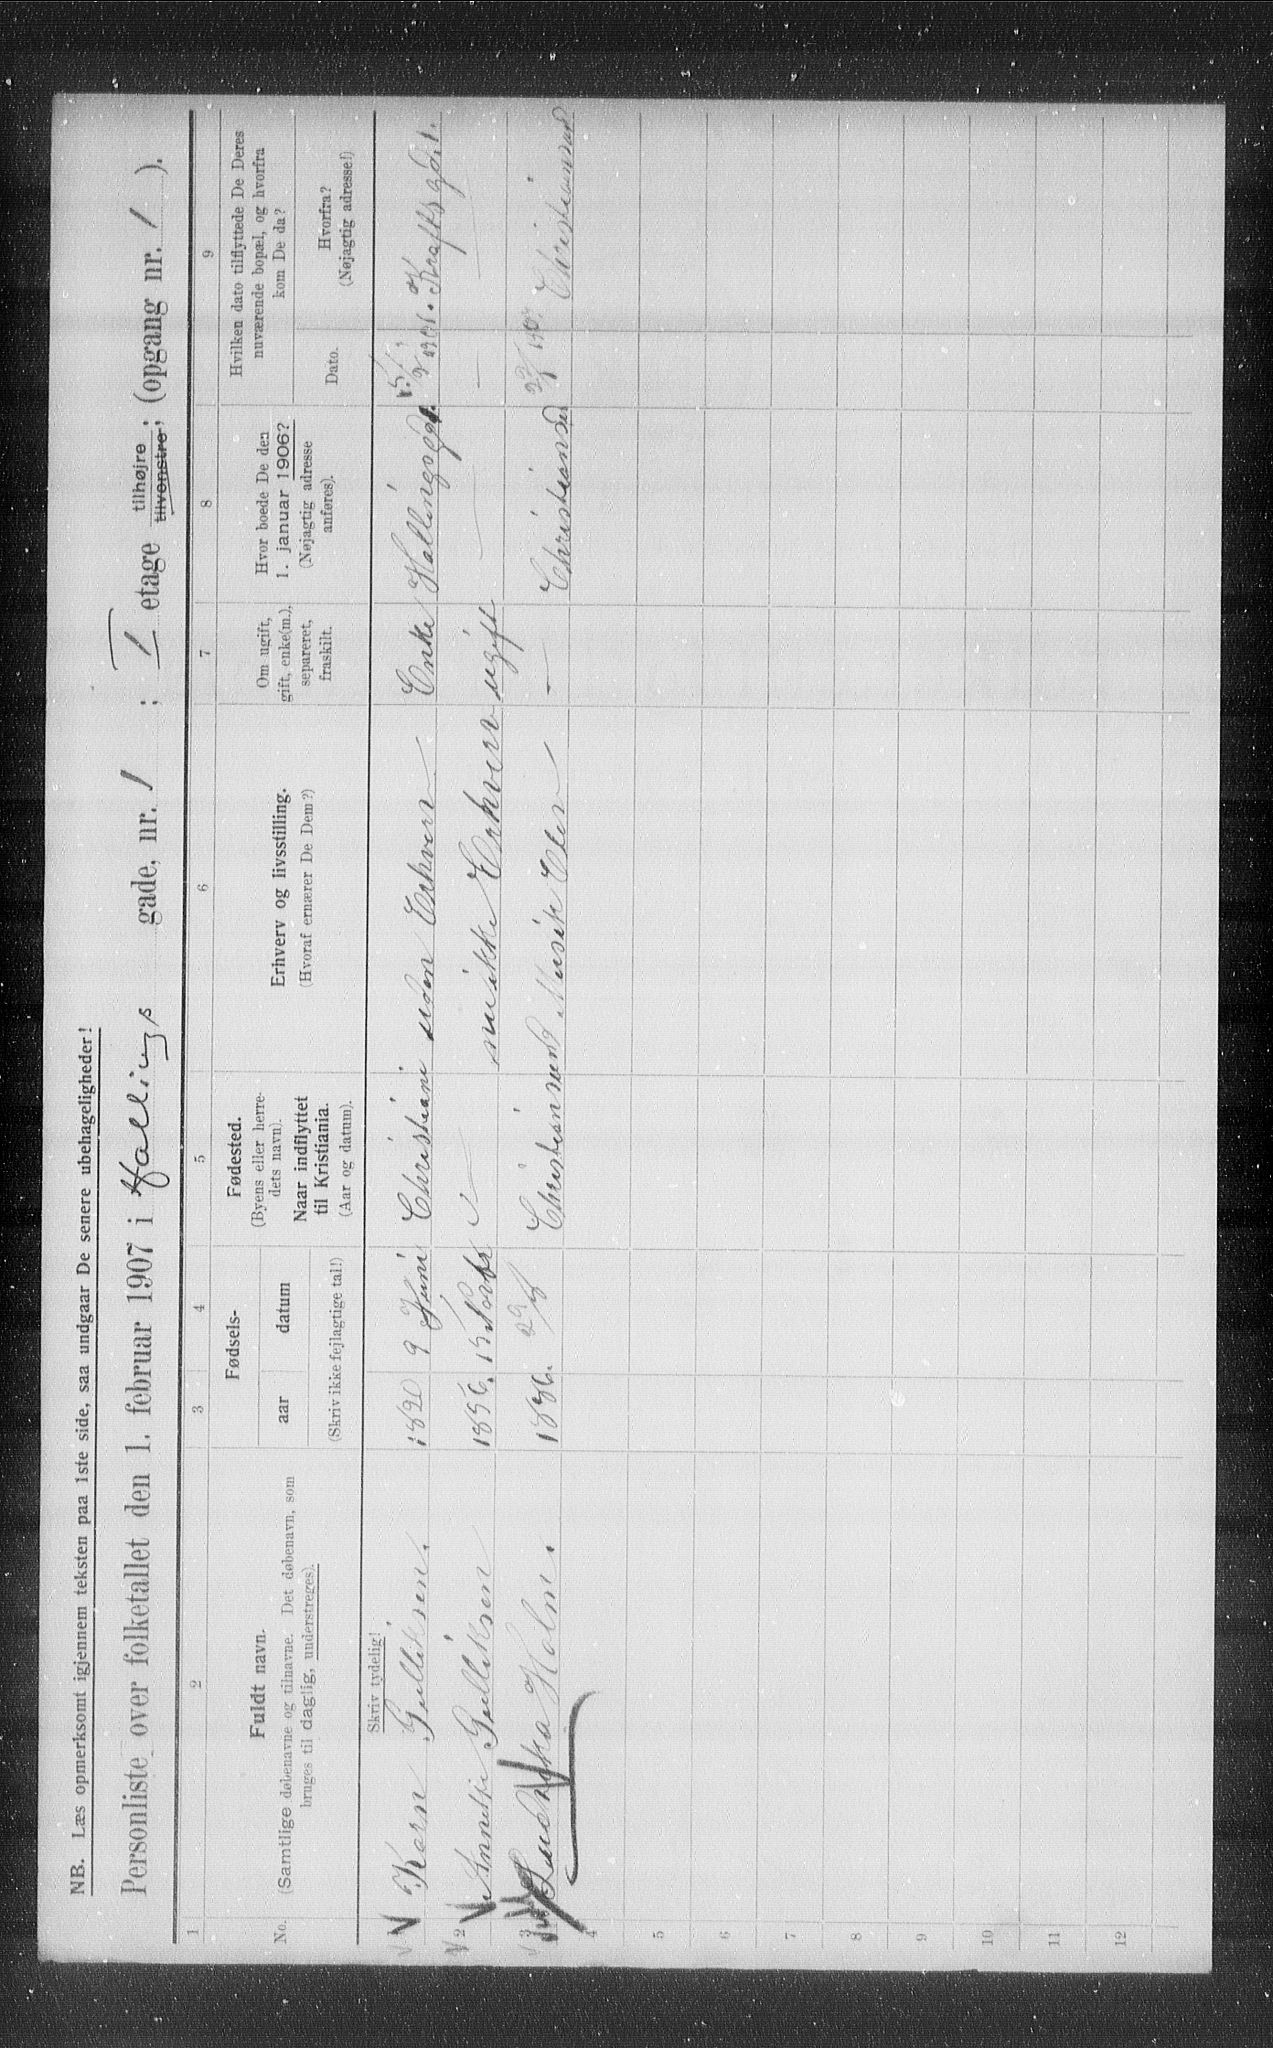 NB. Læs opmerksomt igjennem teksten paa 1ste side, saa undgaar De senere ubehageligheder!
Personliste over folketallet den 1. februar 1907 i Hallings gade, nr. 1 ; I etage tilhøjre tilvenstre; (opgang nr. 1 ).
1 2 3 4 5 6 7 8 9
No.
Fuldt navn.
(Samtlige døbenavne og tilnavne. Det døbenavn, som
bruges til daglig, understreges).
Fødsels-
aar datum
(Skriv ikke fejlagtige tal!)
Fødested.
(Byens eller herre-
dets navn).
Naar indflyttet
til Kristiania.
(Aar og datum).
Erhverv og livsstilling.
(Hvoraf ernærer De Dem?)
Om ugift,
gift, enke(m.),
separeret,
fraskilt.
Hvor boede De den
1. januar 1906?
(Nøjagtig adresse
anføres).
Hvilken dato tilflyttede De Deres
nuværende bopæl, og hvorfra
kom De da?
Dato.
Hvorfra?
(Nøjagtig adresse!)
Skriv tydelig!
Karn Gulliksen. 1820 9 Juni Christiani uden Erhverv Enke Hallingsgd 1. Krafts gd 1.
2 Gulliksen 1856. 15 Novbr — Erhverv ugift — — —
3 Holm. 1886. 29/8 Christiansund Musik Elev — Christiansd Christiansund
4
5
6
7
8
9
10
11
12